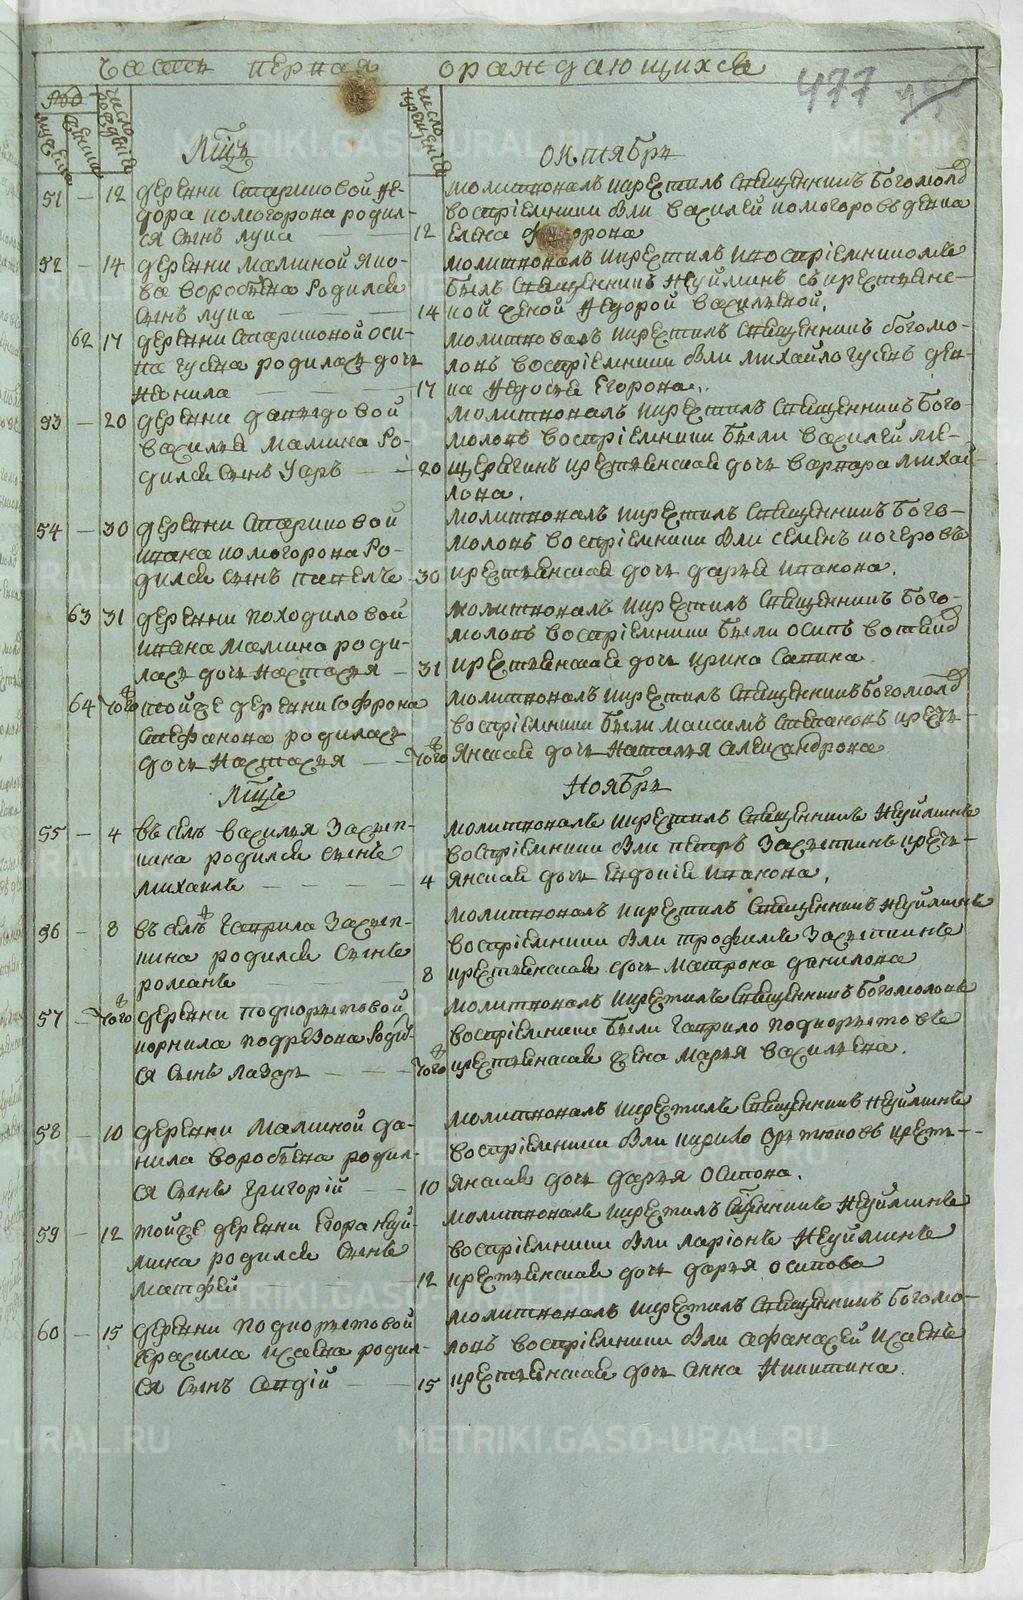 часть первая ораждающихся
477
число рождения
число крещения
мужеска
женска
Мцъ октябрь
51 — 12 деревни Стариковой фе-
дора комогорова родил-
ся сынъ лука
12
молитвовалъ икрестилъ священникъ Богомоловъ
воспрiемники были василей комогоровъ девка
Елена
52 — 14 деревни малиной яко-
ва воробьева родился
сынъ лука
14
молитвовалъ икрестилъ ивоспрiемникомъ
былъ священникъ Неуйминъ съ крестьянс-
кой женой Федорой васильевой.
62 17 деревни Стариковой оси-
па гусева родилась дочь
неонила
17
молитвовалъ икрестилъ священникъ богомо-
ловъ воспрiемники были михайло гусевъ дев-
ка Федосья Егорова.
53 — 20 деревни давыдовой
василья малина ро-
дился сынъ уаръ
20
молитвовалъ икрестилъ священникъ Бого-
моловъ воспрiемники были василей ме-
щерягинъ крестьянская дочь варвара михай-
лова.
54 — 30 деревни Стариковой
ивана комогорова ро-
дился сынъ павелъ
30
молитвовалъ икрестилъ священникъ Бого-
моловъ воспрiемники были семенъ кочеровъ
крестьянская дочь дарья иванова.
63 31 деревни походиловой
ивана малина роди-
лась дочь настасья
31
молитвовалъ икрестилъ священникъ Бого-
моловъ воспрiемники были осипъ
крестьянская дочь ирина савина
64 того тойже деревни софрона
стефанова родилась
дочь настасья
того
молитвовалъ икрестилъ священникъ Богомоловъ
воспрiемники были максимъ степановъ кресть-
янская дочь наталья александрова
Мцъ Ноябрь
55 — 4 въ селѣ василья засып-
кина родился сынъ
михаилъ
4
молитвовалъ икрестилъ священникъ Неуйминъ
воспрiемники были петръ засыпкинъ кресть-
янская дочь евдокiя иванова.
56 — 8 въ селѣ гаврила засып-
кина родился сынъ
романъ
8
молитвовалъ икрестилъ священникъ Неуйминъ
воспрiемники были трофимъ засыпкинъ
крестьянская дочь матрона данилова
57 — того деревни подкорытовой
корнила подрезова роди-
ся сынъ лазарь
того
молитвовалъ икрестилъ священникъ богомоловъ
воспрiемники были гаврило подкорытовъ
крестьянская жена марья васильева.
58 — 10 деревни малиной да-
нила воробьева родил-
ся сынъ григорiй
10
молитвовалъ икрестилъ священникъ неуйминъ
воспрiемники были кирило ортюковъ кресть-
янская дочь дарья осипова.
59 — 12 тойже деревни егора неуй-
мина родился сынъ
матфей
12
молитвовалъ икрестилъ священникъ Неуйминъ
воспрiемники были ларiонъ Неуйминъ
крестьянская дочь дарья осипова
60 — 15 деревни подкорытовой
герасима исаева родил-
ся сынъ авдiй
15
молитвовалъ икрестилъ священникъ богомо-
ловъ воспрiемники были афанасей исаевъ
крестьянская дочь анна Никитина.
METRIKI.GASO-URAL.RU